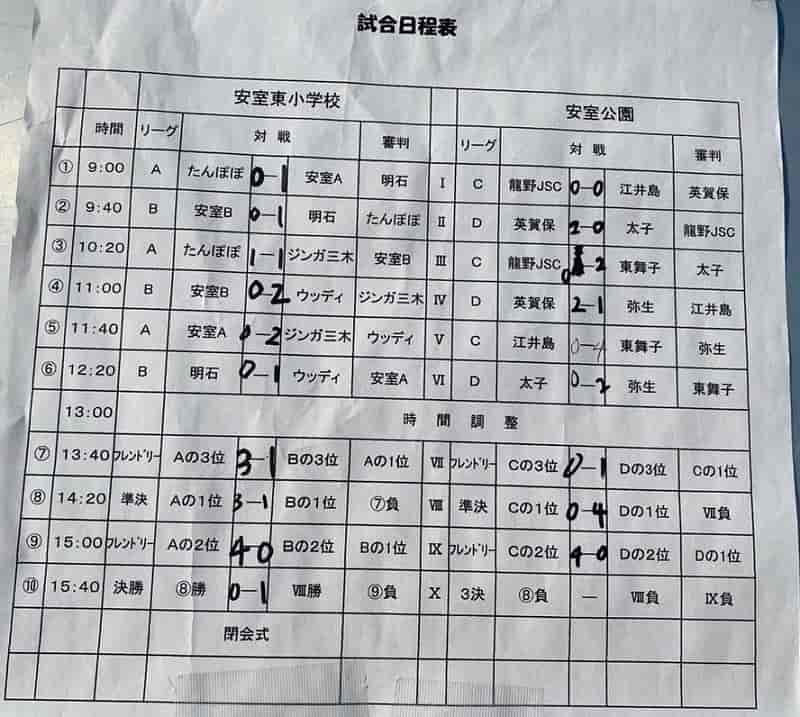 試合日程表
安室東小学校 安室公園
時間 リーグ 対戦 審判 リーグ 対戦 審判
① 9:00 A たんぽぽ 0-1 安室A 明石 Ⅰ C 龍野JSC 0-0 江井島 英賀保
② 9:40 B 安室B 0-1 明石 たんぽぽ Ⅱ D 英賀保 2-0 太子 龍野JSC
③ 10:20 A たんぽぽ 1-1 ジンガ三木 安室B Ⅲ C 龍野JSC 0-2 東舞子 太子
④ 11:00 B 安室B 0-2 ウッディ ジンガ三木 Ⅳ D 英賀保 2-1 弥生 江井島
⑤ 11:40 A 安室A 0-2 ジンガ三木 ウッディ Ⅴ C 江井島 0-4 東舞子 弥生
⑥ 12:20 B 明石 0-1 ウッディ 安室A Ⅵ D 太子 0-2 弥生 東舞子
13:00 時間調整
⑦ 13:40 フレンドリー Aの3位 3-1 Bの3位 Aの1位 Ⅶ フレンドリー Cの3位 0-1 Dの3位 Cの1位
⑧ 14:20 準決 Aの1位 3-1 Bの1位 ⑦負 Ⅷ 準決 Cの1位 0-4 Dの1位 Ⅶ負
⑨ 15:00 フレンドリー Aの2位 4-0 Bの2位 Bの1位 Ⅸ フレンドリー Cの2位 4-0 Dの2位 Dの1位
⑩ 15:40 決勝 ⑧勝 0-1 Ⅷ勝 ⑨負 Ⅹ 3決 ⑧負 — Ⅷ負 Ⅸ負
閉会式